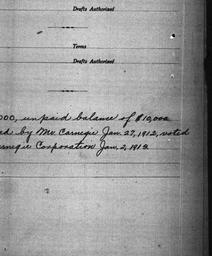 Drafts Authorized
Terms
Drafts Authorized
000, unpaid balance of $10,000
ed by Mr. Carnegie Jan. 27, 1912, voted
arnegie Corporation Jan. 2, 1913